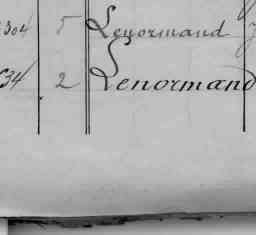 304 5 Lenormand
34 2 Lenormand